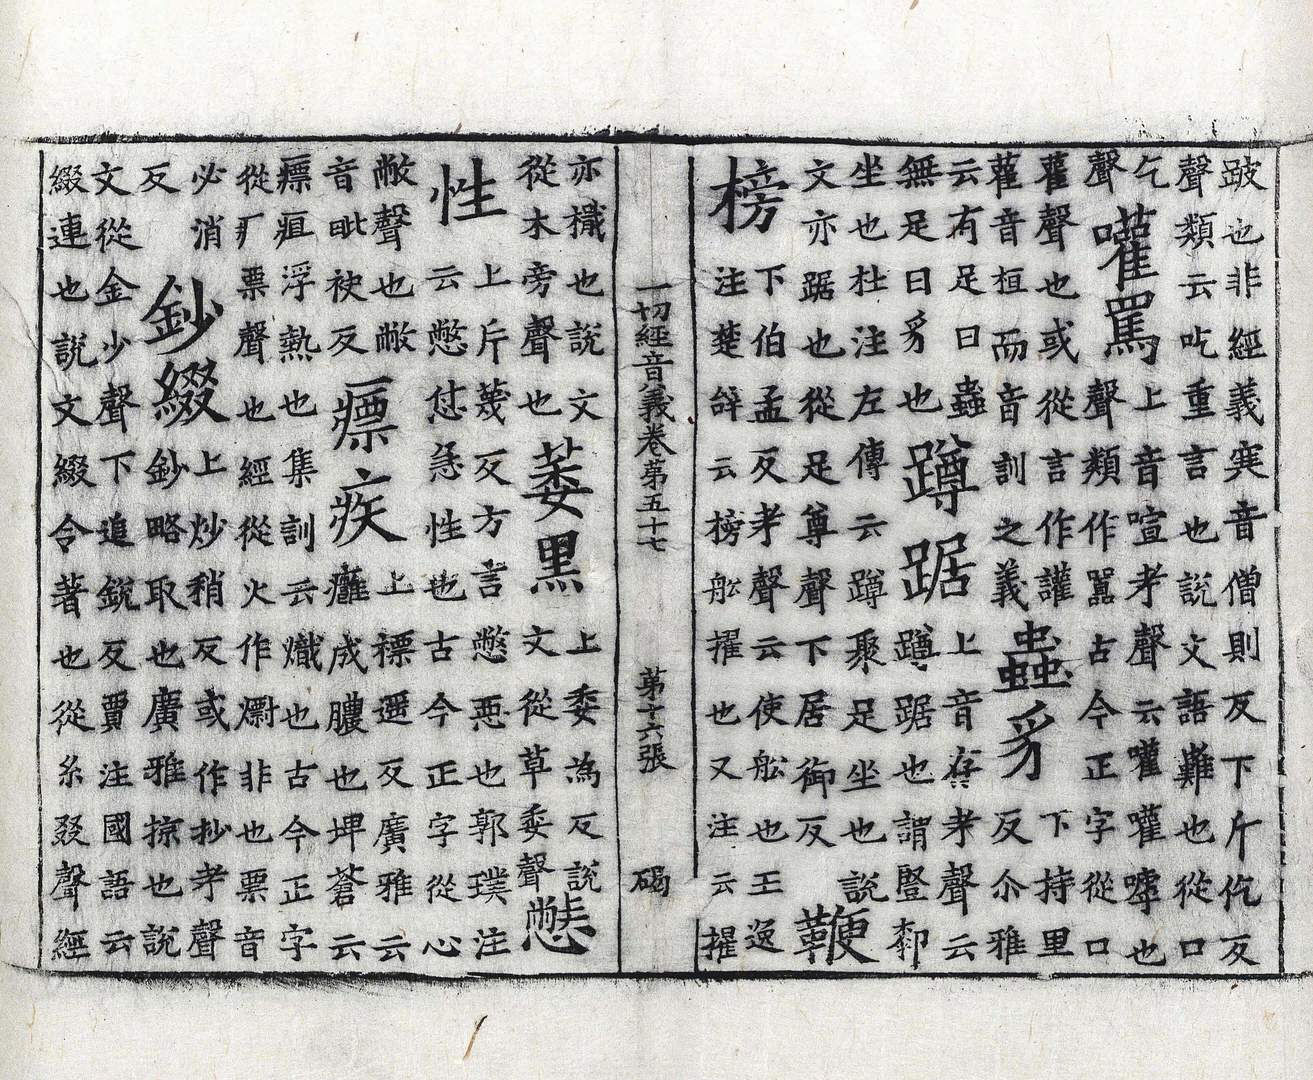 跛也非經義寋音僧則反下斤仡反
聲類云吃重言也說文語難也從口
乞
聲
嚾罵
上音喧考聲云嚾嚾嘑也
聲類作嚚古今正字從口
雚聲也或從言作讙
雚音桓而音訓之義
蟲豸
下持里
反尒雅
云有足曰蟲
無足曰豸也
蹲踞
上音存考聲云
蹲踞也謂豎厀
坐也杜注左傳云蹲聚足坐也說
文亦踞也從足尊聲下居御反
鞭
榜
下伯孟反考聲云使舩也王逸
注楚辭云榜舩擢也又注云擢
一切經音義卷第五十七 第十六張 碣
亦檝也說文
從木旁聲也
萎黑
上委為反說
文從草委聲
憋
性
上斤蔑反方言憋惡也郭璞注
云憋怤急性也古今正字從心
敝聲也敝
音毗袂反
瘭疾
上褾遥反廣雅云
癰成膿也埤蒼云
瘭疽浮熱也集訓云熾也古今正字
從疒票聲也經從火作爂非也票音
必消
反
鈔綴
上炒稍反或作抄考聲
鈔略取也廣雅掠也說
文從金少聲下追銳反賈注國語云
綴連也說文綴令著也從糸叕聲經